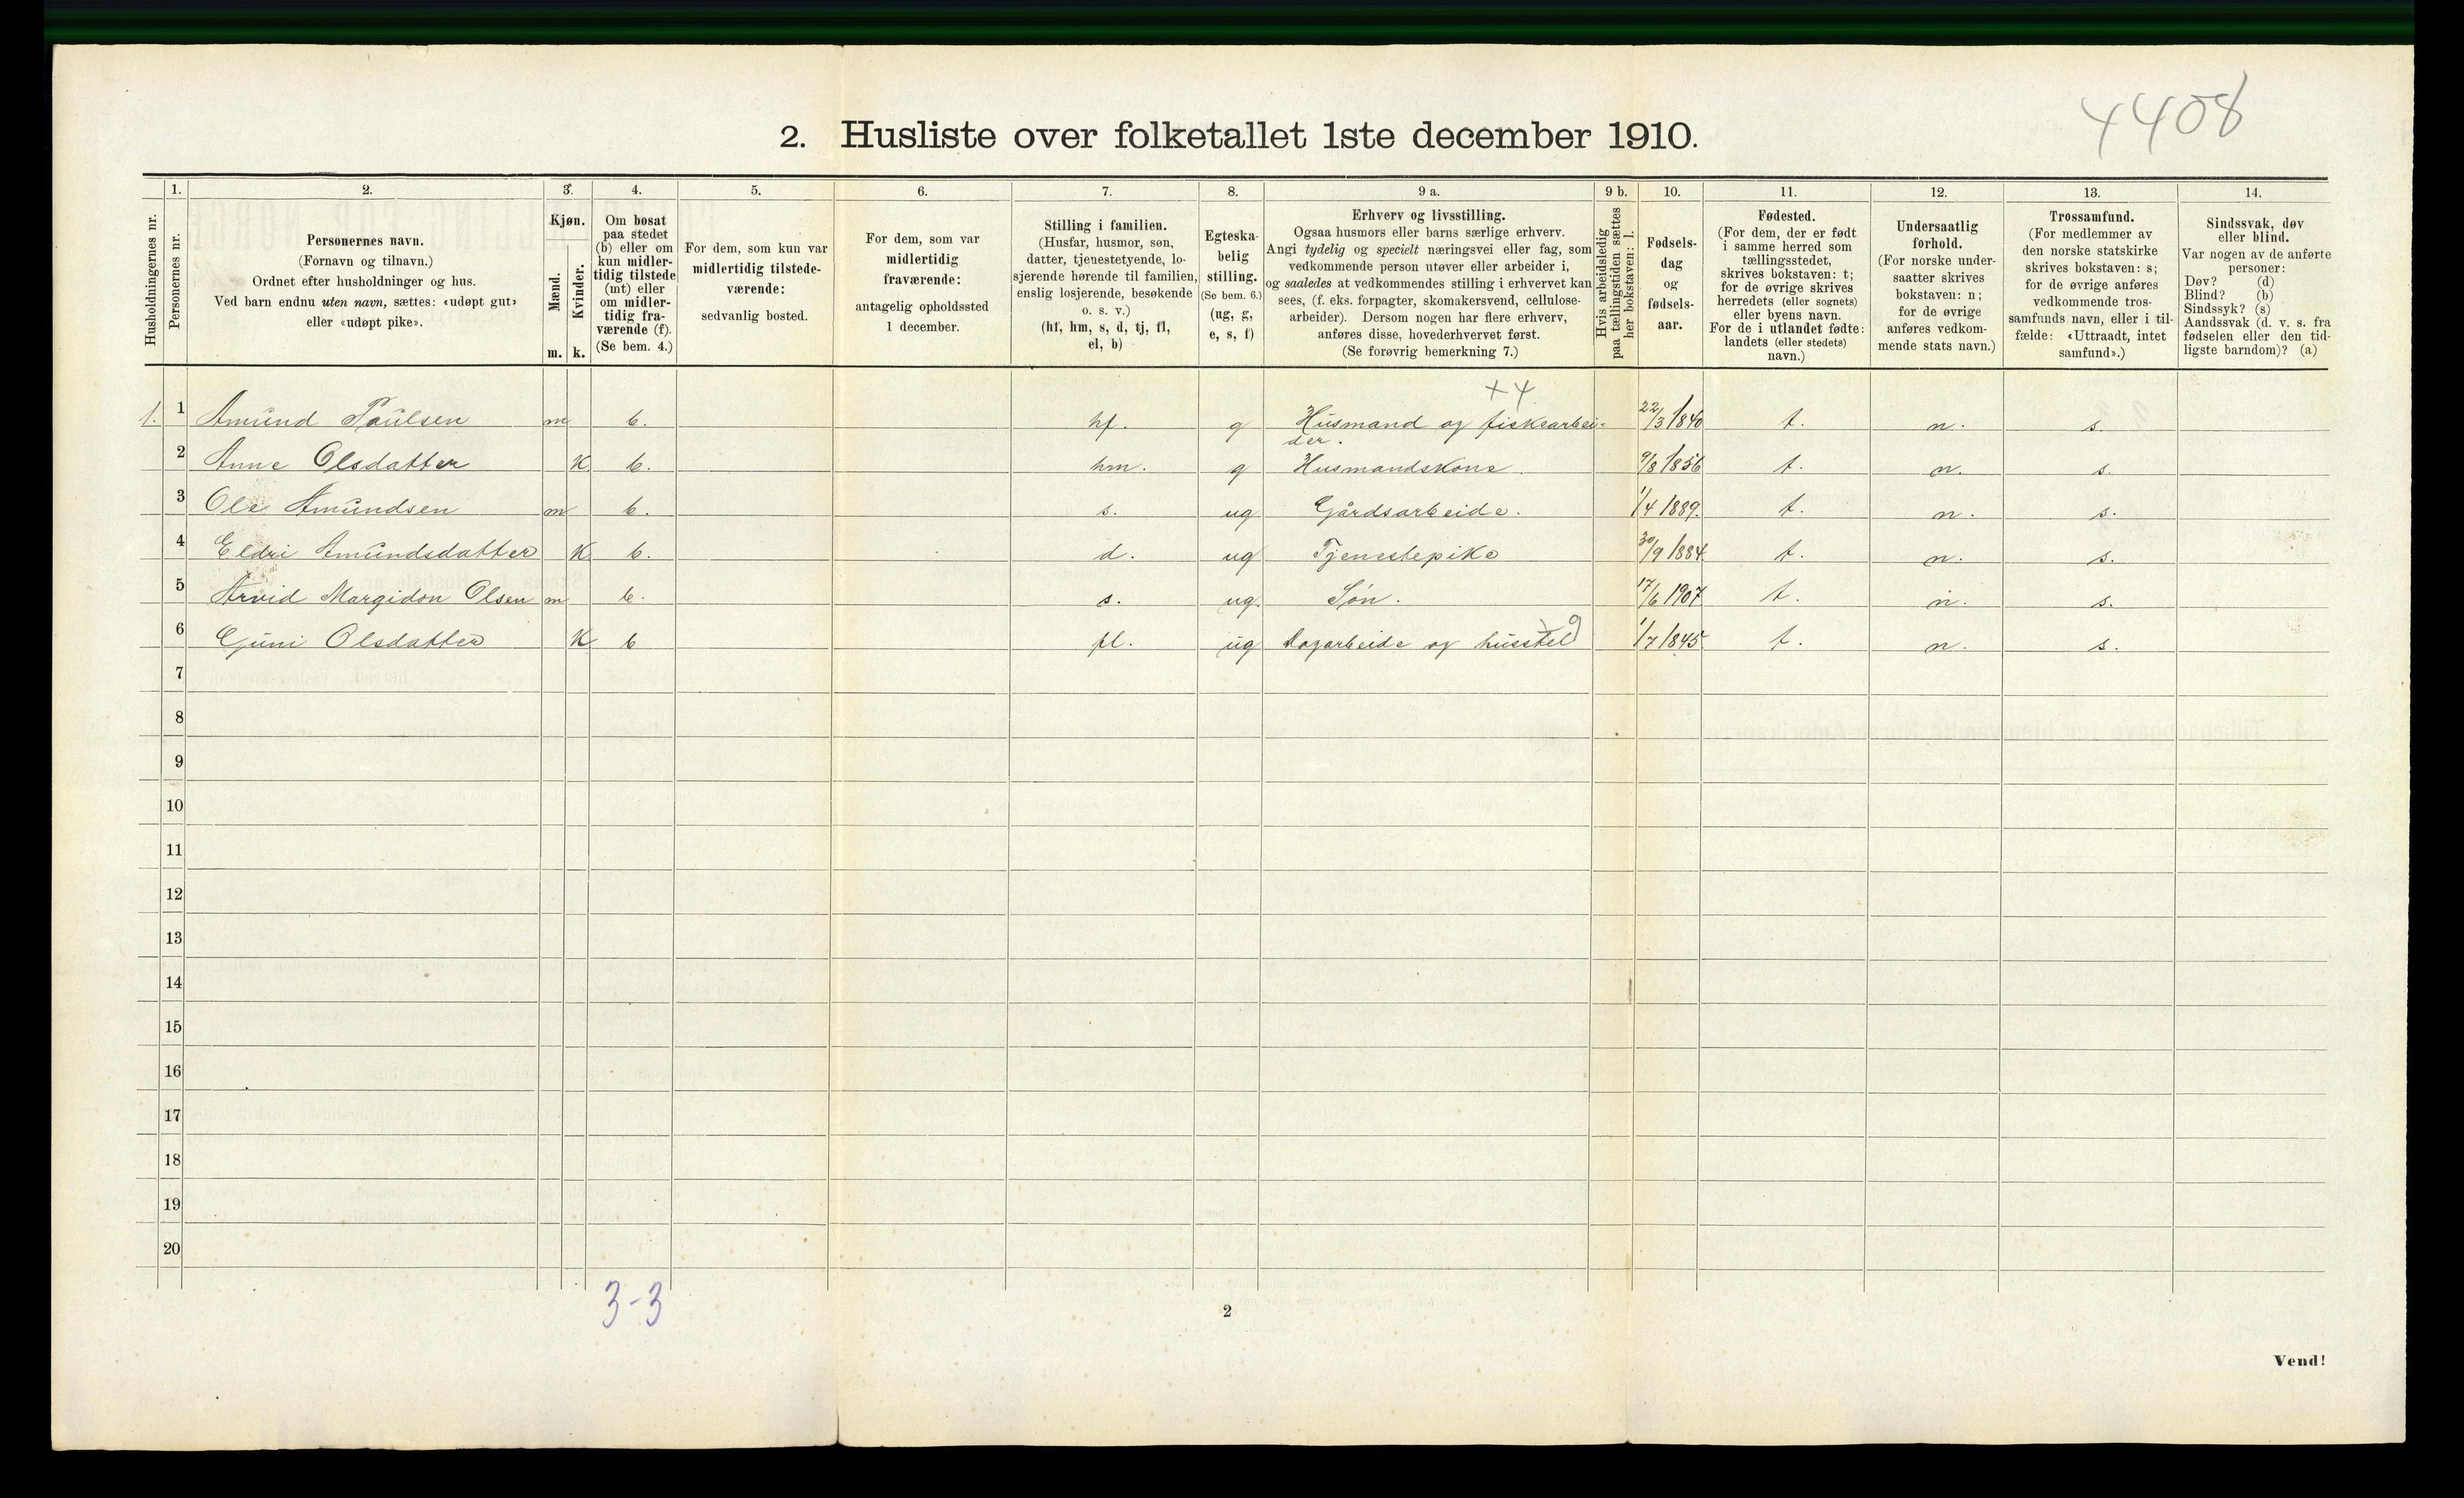 4408
2. Husliste over folketallet 1ste december 1910.
Husholdningernes nr.
1.
Personernes nr.
2.
Personernes navn.
(Fornavn og tilnavn.)
Ordnet efter husholdninger og hus.
Ved barn endnu uten navn, sættes: «udøpt gut»
eller «udøpt pike».
3.
Kjøn.
Mænd.
Kvinder.
m. k.
4.
Om bosat
paa stedet
(b) eller om
kun midler-
tidig tilstede
(mt) eller
om midler-
tidig fra-
værende (f).
(Se bem. 4.)
5.
For dem, som kun var
midlertidig tilstede-
værende:
sedvanlig bosted.
6.
For dem, som var
midlertidig
fraværende:
antagelig opholdssted
1 december.
7.
Stilling i familien.
(Husfar, husmor, søn,
datter, tjenestetyende, lo-
sjerende hørende til familien,
enslig losjerende, besøkende
o. s. v.)
(hf, hm, s, d, tj, fl,
el, b)
8.
Egteska-
belig
stilling.
(Se bem. 6.)
(ug, g,
e, s, f)
9 a.
Erhverv og livsstilling.
Ogsaa husmors eller barns særlige erhverv.
Angi tydelig og specielt næringsvei eller fag, som
vedkommende person utøver eller arbeider i,
og saaledes at vedkommendes stilling i erhvervet kan
sees, (f. eks. forpagter, skomakersvend, cellulose-
arbeider). Dersom nogen har flere erhverv,
anføres disse, hovederhvervet først.
(Se forøvrig bemerkning 7.)
9 b.
Hvis arbeidsledig
paa tællingstiden sættes
her bokstaven: l.
10.
Fødsels-
dag
og
fødsels-
aar.
11.
Fødested.
(For dem, der er født
i samme herred som
tællingsstedet,
skrives bokstaven: t;
for de øvrige skrives
herredets (eller sognets)
eller byens navn.
For de i utlandet fødte:
landets (eller stedets)
navn.)
12.
Undersaatlig
forhold.
(For norske under-
saatter skrives
bokstaven: n;
for de øvrige
anføres vedkom-
mende stats navn.)
13.
Trossamfund.
(For medlemmer av
den norske statskirke
skrives bokstaven: s;
for de øvrige anføres
vedkommende tros-
samfunds navn, eller i til-
fælde: «Uttraadt, intet
samfund».)
14.
Sindssvak, døv
eller blind.
Var nogen av de anførte
personer:
Døv? (d)
Blind? (b)
Sindssyk? (s)
Aandssvak (d. v. s. fra
fødselen eller den tid-
ligste barndom)? (a)
+4
1. 1 Amund Paulsen m b. hf. g Husmand og fiskearbei- 22/3 1840 t. n. s.
der.
2 Anne Olsdatter K b. hm. g Husmandskone. 9/8 1856 t. n. s.
3 Ole Amundsen m b. s. ug Gårdsarbeide. 1/4 1889. t. n. s.
4 Eldri Amundsdatter K b. d. ug Tjenestepike 30/9 1884. t. n. s.
5 Arvid Margidon Olsen m b. s. ug. Søn. 17/6 1907 t. n. s.
6 Guni Olsdatter K b fl. ug Dagarbeide og husstel 1/7 1845. t. n. s.
7
8
9
10
11
12
13
14
15
16
17
18
19
20
3-3
2
Vend!